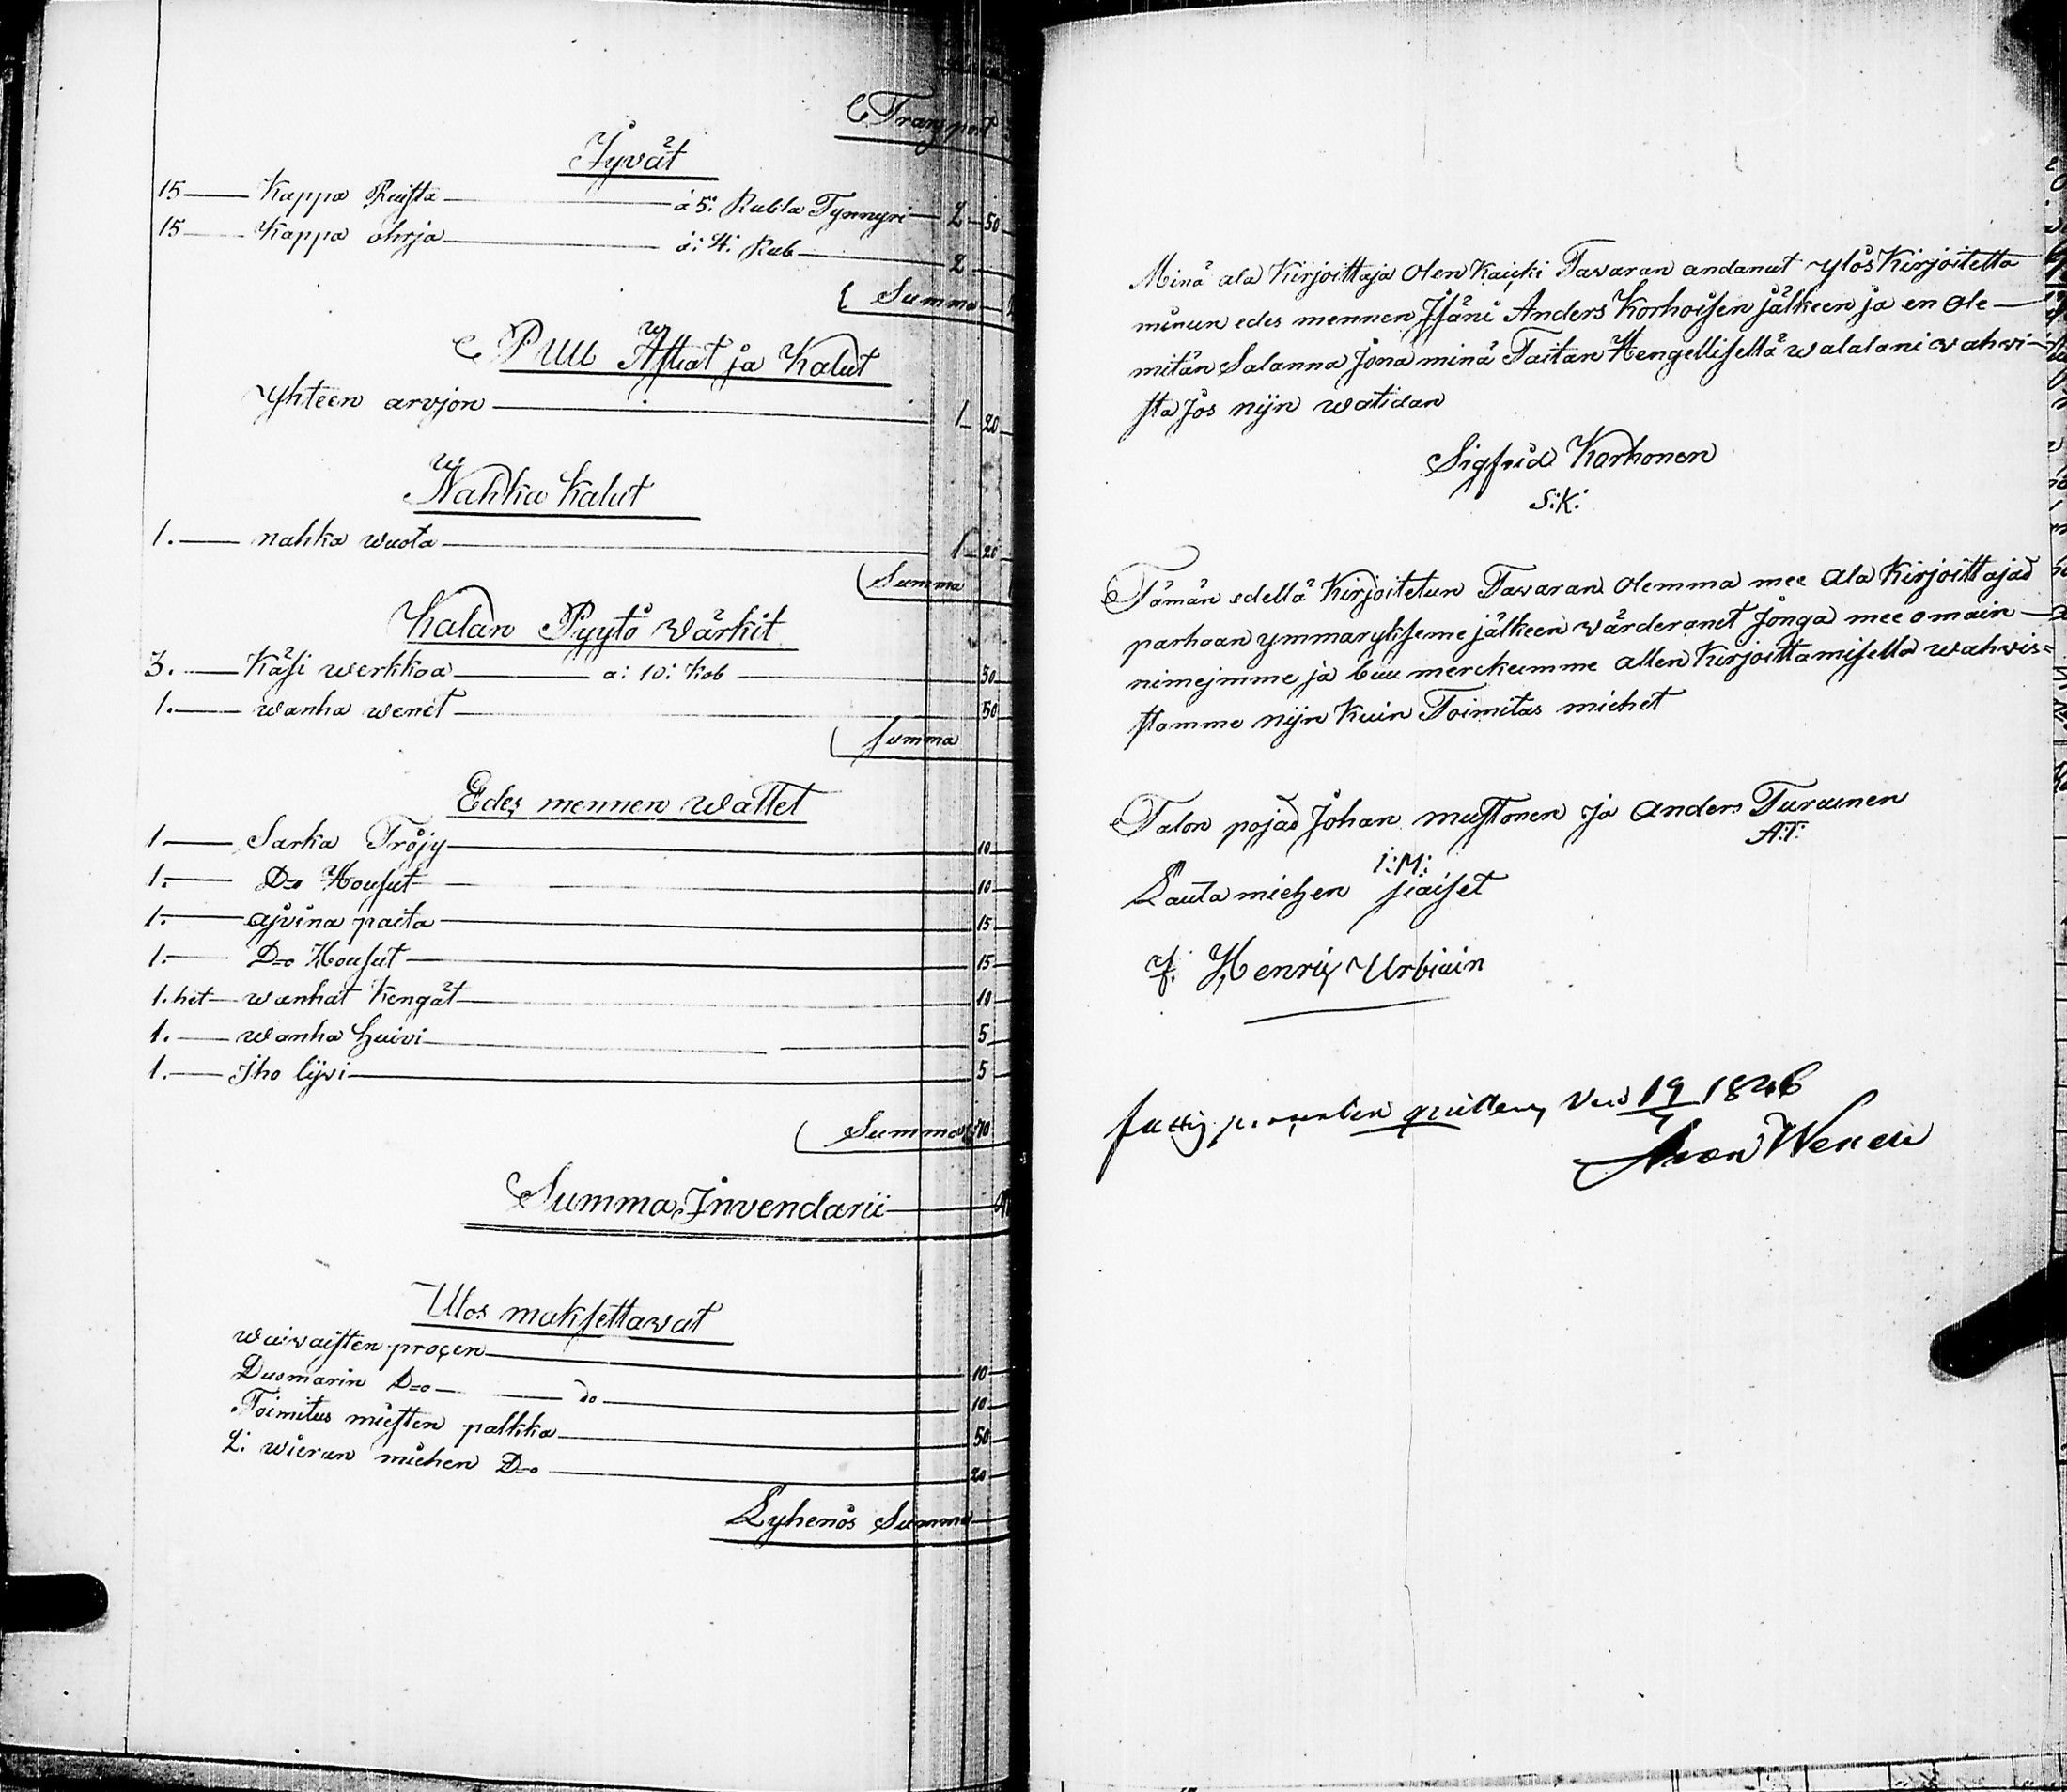 Transport
Jyvät
15 — Kappa Ruista — á 5: Rubla Tynnyri — 2 — 50
15 — Kappa ohrja — á: 4: Rub — 2 —
Summa
Puu Astiat ja Kalut
Yhteen arvjon — 1 — 20
Nahka Kalut
1. — nahka wuota — 1 — 20
Summa
Kalan Pyytö Wärkit
3. — Käsi werkkoa — a: 10: Kob — 30
1. — wanha wenet — 50
Summa
Edes mennen Wattet
1 — Sarka Tröjy — 10
1. — D=o Housut — 10
1. — ajvina paita — 15
1. — D=o Housut — 15
1. het — wanhat Kengät — 10
1. — wanha huivi — 5
1. — Jho lijvi — 5
Summa 70
Summa Invendarii
Ulos maksettawat
waivaisten proçen — 10
Duomarin D=o — do — 10
Toimitus miesten palkka — 50
2: wieran miehen D=o — 20
Lyhenös Summa
Minä ala Kirjoittaja olen Kaicki Tavaran andanut ylös Kirjoitetta
minun edes mennen Jsäni Anders Korhoisen jälkeen ja en ole
mitän Salanna Jona minä Taitan Hengellisellä walalani vahwi-
sta Jos nijn watidan
Sigfrid Korhonen
S:K:
Tämän edellä Kirjoitetun Tavaran olemma mee ala Kirjoittajad
parhaan ymmarykseme jälkeen wärderanet Jonga mee omain
nimejmme ja buu merckumme allen Kirjoittamisella wahwis=
tamme nijn Kuin Toimitas miehet
Talon pojad Johan mustonen ja Anders Turunen
I:M: A:T:
Lauta miehen siaiset
Henrix Urbiain
fattig procenten quitteras 19 1846
Wenell